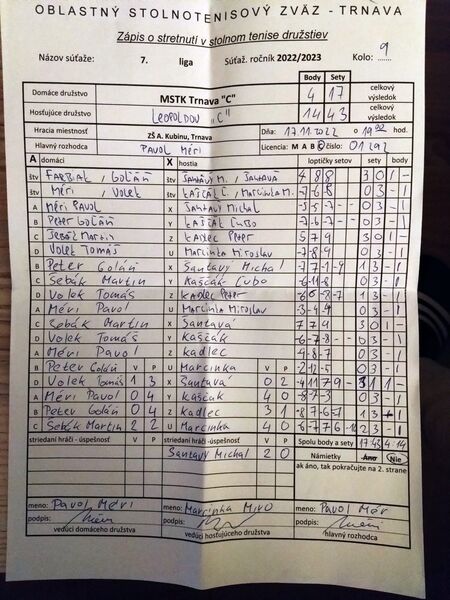 OBLASTNÝ STOLNOTENISOVÝ ZVÄZ - TRNAVA
Zápis o stretnutí v stolnom tenise družstiev
Názov súťaže: 7. liga Súťaž. ročník 2022/2023 Kolo: 9
Body Sety
Domáce družstvo MSTK Trnava "C" 4 17 celkový výsledok
Hosťujúce družstvo LEOPOLDOV "C" 14 43 celkový výsledok
Hracia miestnosť ZŠ A. Kubinu, Trnava Dňa: 17.11.2022 o hod.
Hlavný rozhodca PAVOL MÉRI Licencia: M A B C číslo: 01292
A domáci X hostia loptičky setov sety body
štv FARBIAK, GOLÁŇ štv ŠANTAVÝ M., ŠANTAVÁ 4 8 8 3 0 1 -
štv MÉRI, VOLEK štv KAŠČÁK Ľ., MARCINKA M. -7 -6 -8 0 3 - 1
A MÉRI PAVOL X ŠANTAVÝ MICHAL 0 3 - 1
B PETER GOLÁŇ Y KAŠČÁK ĽUBO -7 -6 -7 0 3 - 1
C ŠEBÁK MARTIN Z KADLEC PETER 5 7 9 3 0 1 -
D VOLEK TOMÁŠ U MARCINKA MIROSLAV -7 -8 -9 0 3 - 1
B PETER GOLÁŇ X ŠANTAVÝ MICHAL 1 3 - 1
C ŠEBÁK MARTIN Y KAŠČÁK ĽUBO -6 -11 -8 0 3 - 1
D VOLEK TOMÁŠ Z KADLEC PETER 1 3 - 1
A MÉRI PAVOL U MARCINKA MIROSLAV 0 3 - 1
C ŠEBÁK MARTIN X ŠANTAVÁ 7 7 9 3 0 1 -
D VOLEK TOMÁŠ Y KAŠČÁK -6 -7 -8 0 3 - 1
A MÉRI PAVOL Z KADLEC -4 -8 -7 0 3 - 1
B PETER GOLÁŇ V P U MARCINKA V P 0 3 - 1
D VOLEK TOMÁŠ 1 3 X ŠANTAVÁ 0 2 -4 11 7 9 3 1 1 -
A MÉRI PAVOL 0 4 Y KAŠČÁK 4 0 -8 -7 -3 0 3 - 1
B PETER GOLÁŇ 0 4 Z KADLEC 3 1 -8 7 -6 -7 1 3 - 1
C ŠEBÁK MARTIN 2 2 U MARCINKA 4 0 2 3 - 1
striedaní hráči - úspešnosť V P striedaní hráči -úspešnosť V P Spolu body a sety 17 43 4 14
ŠANTAVÝ MICHAL 2 0 Námietky Áno Nie
ak áno, tak pokračujte na 2. strane
meno: PAVOL MÉRI meno: MARCINKA MIRO meno: PAVOL MÉRI
podpis: podpis: podpis:
vedúci domáceho družstva vedúci hosťujúceho družstva hlavný rozhodca